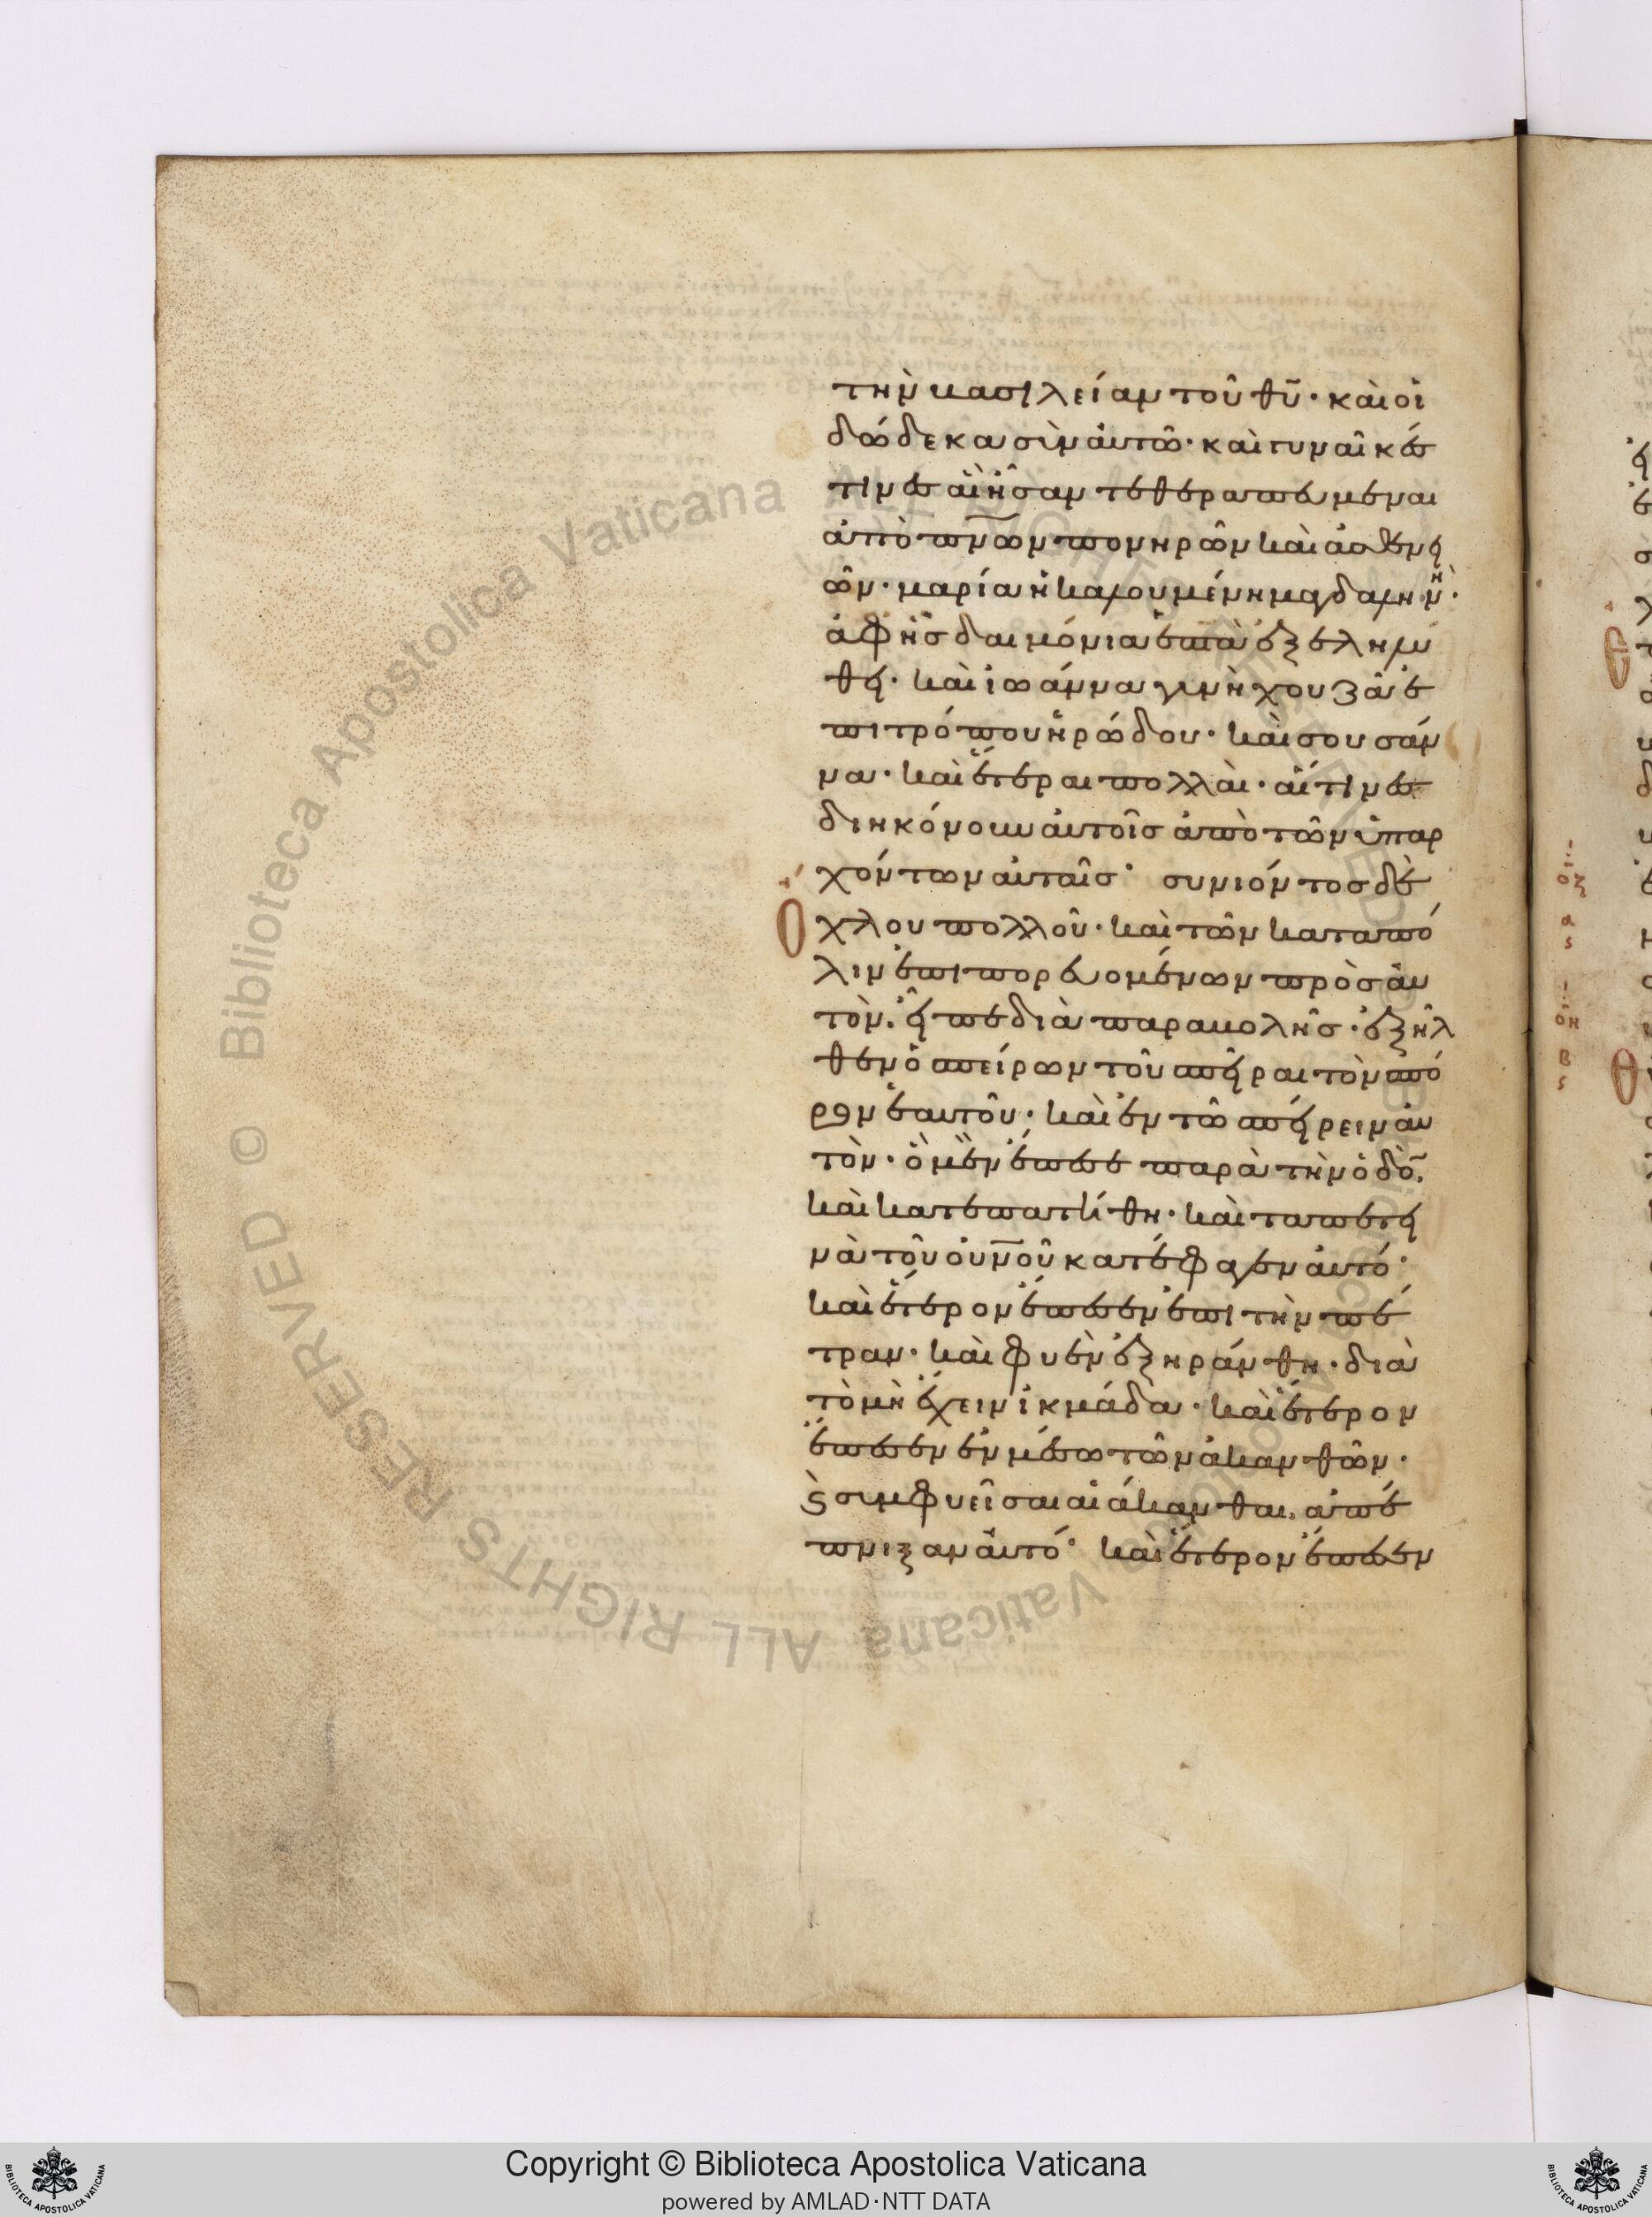 τὴν βασιλείαν τοῦ θ̅υ̅· καὶ οἱ
δώδεκα σὺν αὐτῶ· καὶ γυναῖκές
τινες αἳ ἦσαν τεθεραπευμέναι
ἀπὸ π̅ν̅ων πονηρῶν καὶ ἀσθενει
ῶν· μαρία ἡ καλουμένη μαγδαληνὴ·
ἀφ ἧς δαιμόνια ἑπτὰ ἐξεληλύ
θει· καὶ ἰωάννα γυνὴ χουζᾶ ἐ
πιτρόπου ἡρώδου· καὶ σουσάν
να· καὶ ἕτεραι πολλαὶ· αἵτινες
διηκόνουν αὐτοῖς ἀπὸ τῶν ὑπαρ
χόντων αὐταῖς· συνιόντος δὲ
ὄχλου πολλοῦ· καὶ τῶν κατα πό
λιν ἐπιπορευομένων πρὸς αὐ
τὸν. εἶπε διὰ παραβολῆς· ἐξῆλ
θεν ὁ σπείρων τοῦ σπεῖραι τὸν σπό
ρον ἑαυτοῦ· καὶ ἐν τῶ σπείρειν αὐ
τὸν· ὃ μὲν ἔπεσε παρὰ τὴν ὁδὸ̅.
καὶ κατεπατήθη· καὶ τα πετει
νὰ τοῦ οὐ̅ν̅οῦ κατέφαγεν αὐτό·
καὶ ἕτερον ἔπεσεν ἐπι τὴν πέ
τραν· καὶ φυὲν ἐξηράνθη· διὰ
τὸ μὴ ἔχειν ἰκμάδα· καὶ ἕτερον
ἔπεσεν ἐν μέσω τῶν ἀκανθῶν·
ϛ̀ συμφυεῖσαι αἱ ἄκανθαι. ἀπέ
πνιξαν αὐτό· καὶ ἕτερον ἔπεσεν
Copyright © Biblioteca Apostolica Vaticana
powered by AMLAD·NTT DATA
© Biblioteca Apostolica Vaticana ALL RIGHTS RESERVED